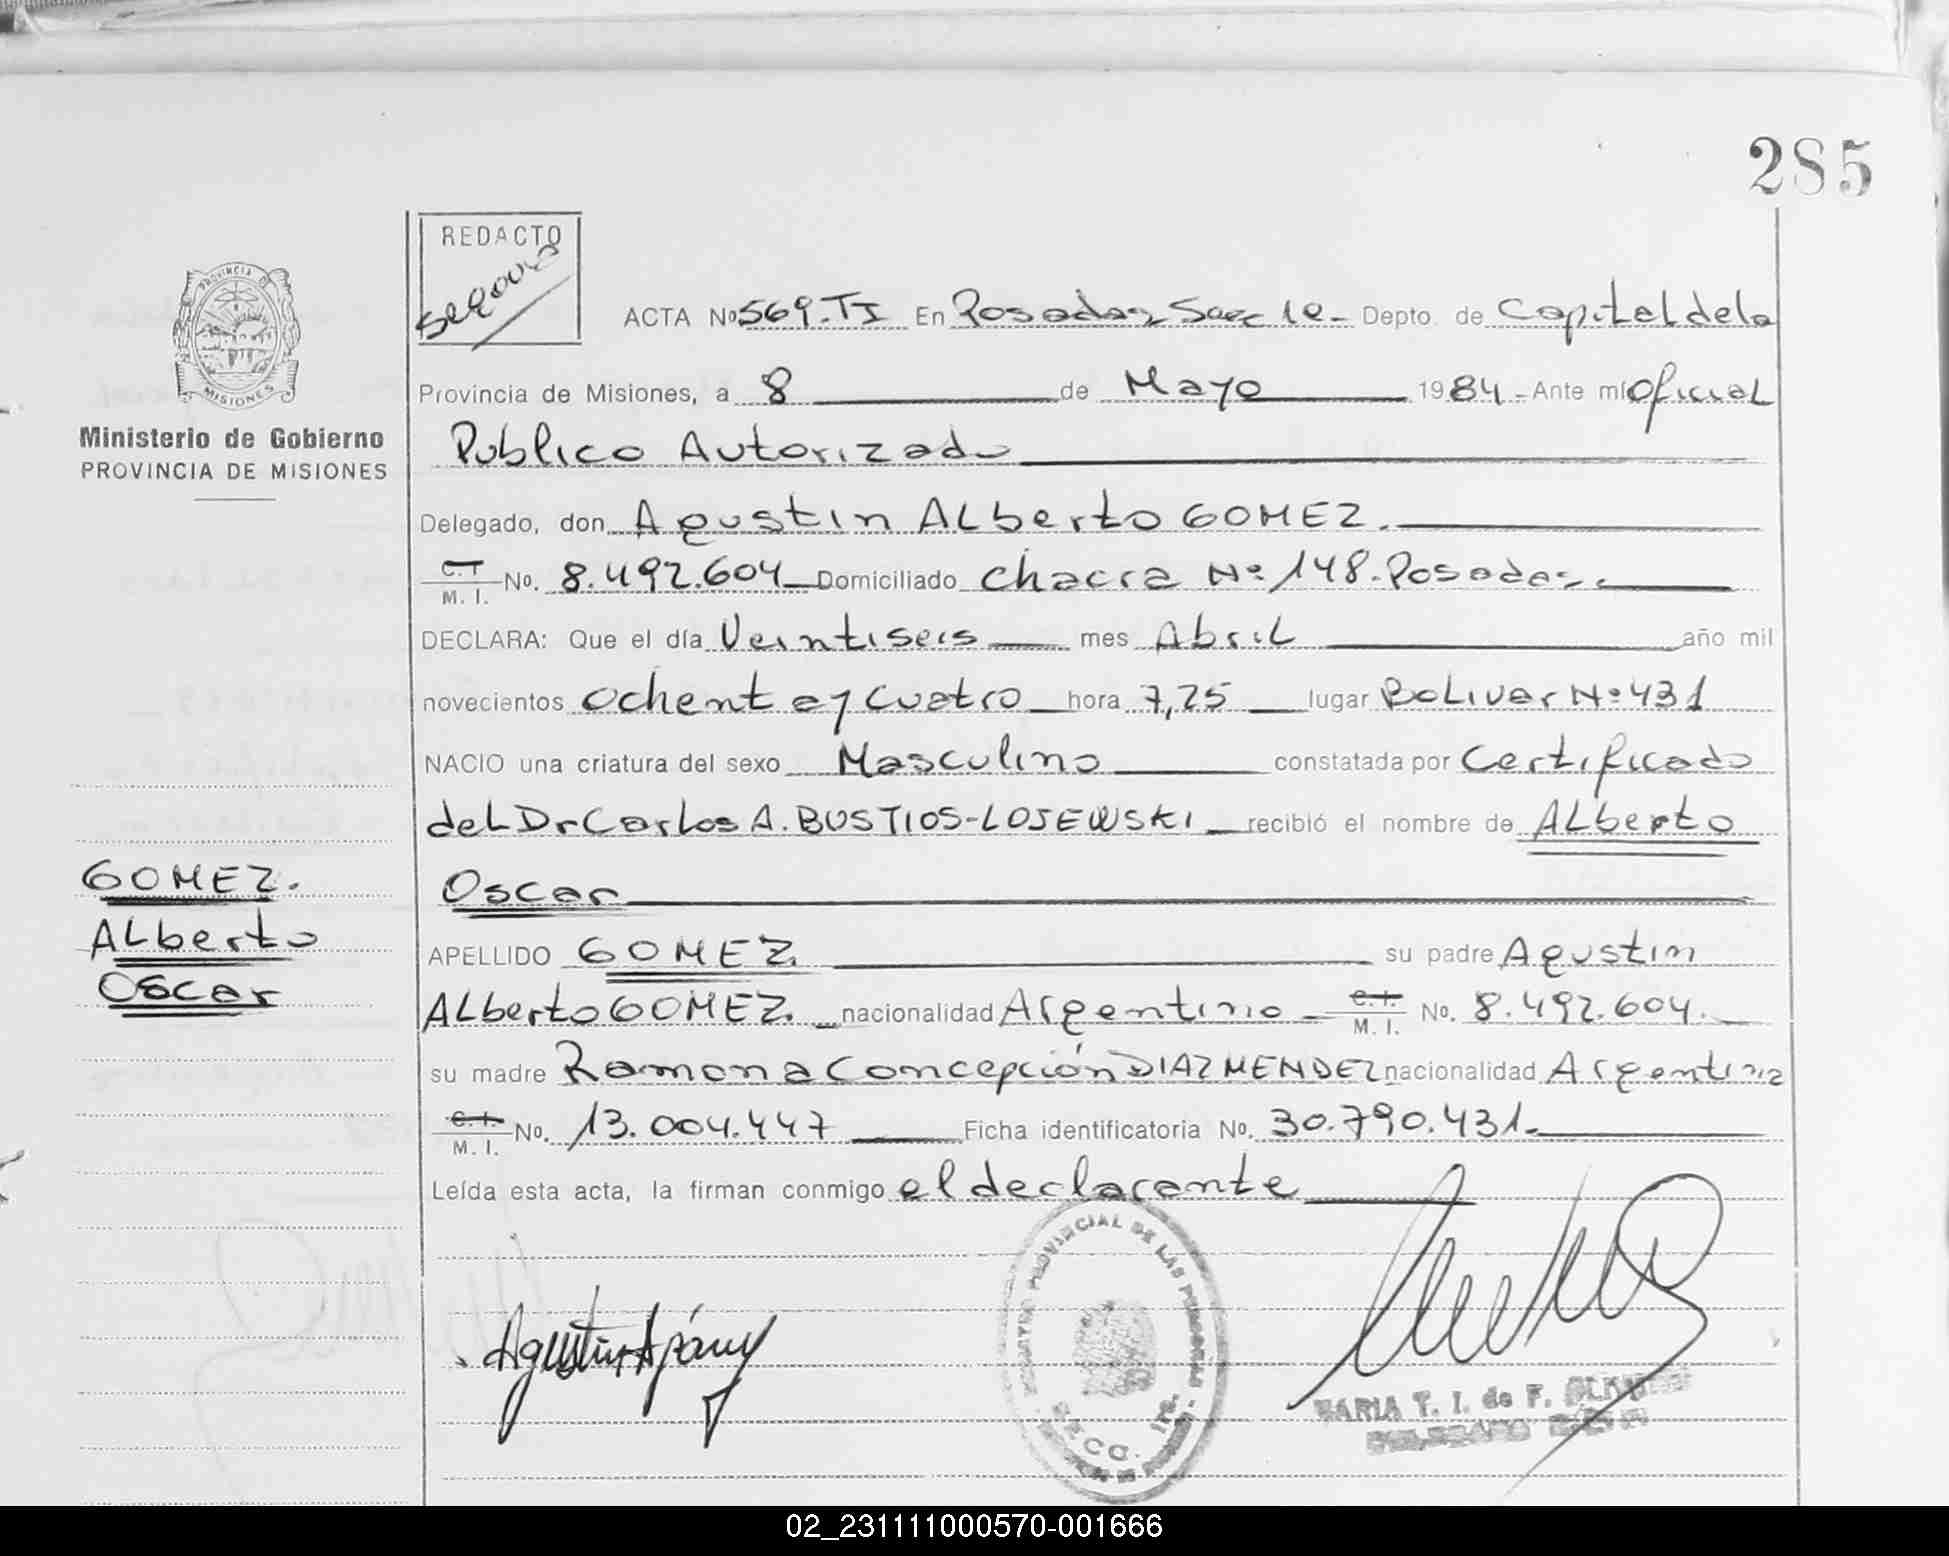 285
REDACTO
PROVINCIA DE
MISIONES
Ministerio de Gobierno
PROVINCIA DE MISIONES
ACTA Nº 569.TI En Posadas Secc 1e- Depto. de Capital de la
Provincia de Misiones, a 8 de Mayo 1984.- Ante mí Oficial
Publico Autorizado
Delegado, don Agustin ALberto GOMEZ.
C.I. M. I. No. 8.492.604 Domiciliado chacra Nº 148. Posadas.
DECLARA: Que el día Veintiseis mes Abril año mil
novecientos ochenta y cuatro hora 7,25 lugar BoLivar Nº 431
NACIO una criatura del sexo Masculino constatada por Certificado
del Dr Carlos A. BUSTIOS-LOSEWSKI recibió el nombre de ALberto
Oscar
GOMEZ.
ALberto
Oscar
APELLIDO GOMEZ. su padre Agustin
ALberto GOMEZ. nacionalidad Argentino C.I. M. I. No. 8.492.604.
su madre Ramona Concepción DIAZ MENDEZ nacionalidad Argentina
C.I. M. I. No. 13.004.447 Ficha identificatoria No. 30.790.431.
Leída esta acta, la firman conmigo el declarante
PROVINCIAL DE LAS PERSONAS
SECC. 1ra.
MARIA T. I. de F.
02_231111000570-001666